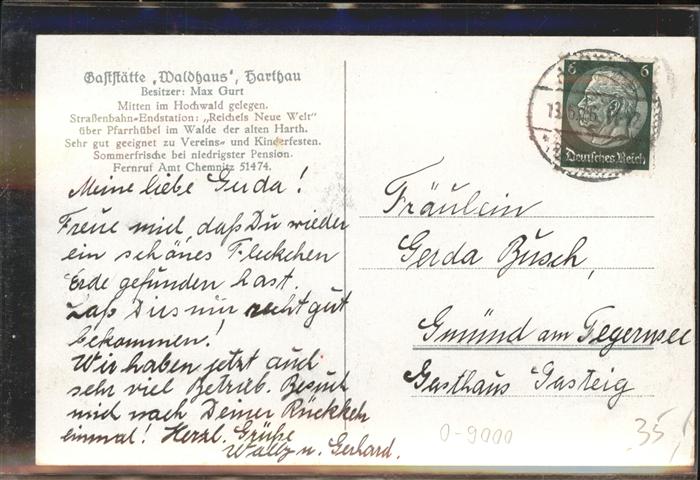 Gaststätte „Waldhaus“, Harthau
Besitzer: Max Gurt
Mitten im Hochwald gelegen.
Straßenbahn-Endstation: „Reichels Neue Welt“
über Pfarrhübel im Walde der alten Harth.
Sehr gut geeignet zu Vereins- und Kinderfesten.
Sommerfrische bei niedrigster Pension.
Fernruf Amt Chemnitz 51474.
Meine liebe Gerda!
Freue mich, daß Du wieder
ein schönes Fleckchen
Erde gefunden hast.
Laß Dirs nur recht gut
bekommen!
Wir haben jetzt auch
sehr viel Betrieb. Besuch
mich nach Deiner Rückkehr
einmal! Herzl. Grüße
Wally u. Gerhard.
6 6
Deutsches Reich
Fräulein
Gerda Busch,
Gmünd am Tegernsee
Gasthaus Gasteig
0-9000
35,-